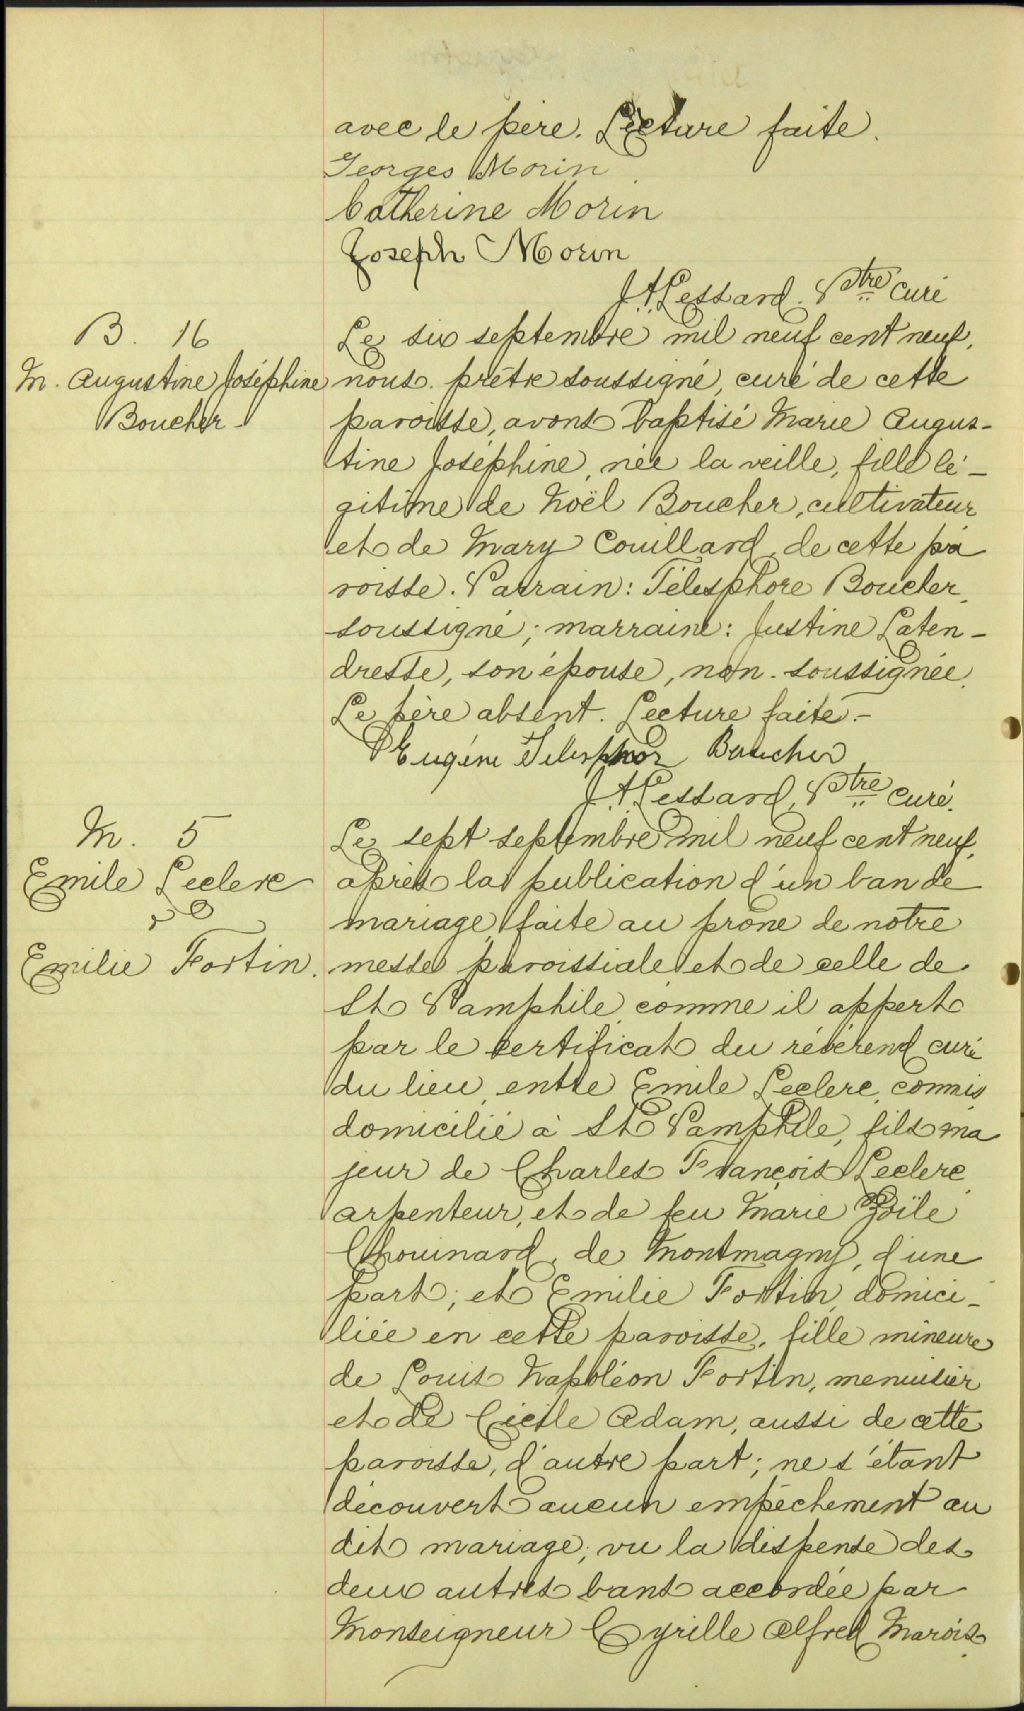 avec le père. Lecture faite.
Georges Morin
Catherine Morin
Joseph Morin
J. A. Lessard. Ptre Curé
B. 16
M. Augustine Joséphine
Boucher
Le six septembre mil neuf cent neuf,
nous prêtre soussigné, curé de cette
paroisse, avons baptisé Marie Augus-
tine Joséphine, née la veille, fille lé-
gitime de Noël Boucher, cultivateur
et de Mary Couillard, de cette pa
roisse. Parrain: Télesphore Boucher,
soussigné; marraine: Justine Laten-
dresse, son épouse, non soussignée.
Le père absent. Lecture faite.-
Eugéne Telesphor Boucher
J. A. Lessard, Ptre Curé.
M. 5
Emile Leclerc
&
Emilie Fortin.
Le sept septembre mil neuf cent neuf,
après la publication d'un ban de
mariage, faite au prône de notre
messe paroissiale et de celle de
St Pamphile comme il appert
par le certificat du révérend curé
du lieu, entre Emile Leclerc, commis
domicilié à St Pamphile, fils ma
jeur de Charles François Leclerc
arpenteur, et de feu Marie Zoïle
Chouinard, de Montmagny, d'une
part; et Emilie Fortin, domici-
liée en cette paroisse, fille mineure
de Louis Napoléon Fortin, menuisier
et de Cécile Adam, aussi de cette
paroisse, d'autre part; ne s'étant
découvert aucun empêchement au
dit mariage; vu la dispense des
deux autres bans accordée par
Monseigneur Cyrille Alfred Marois